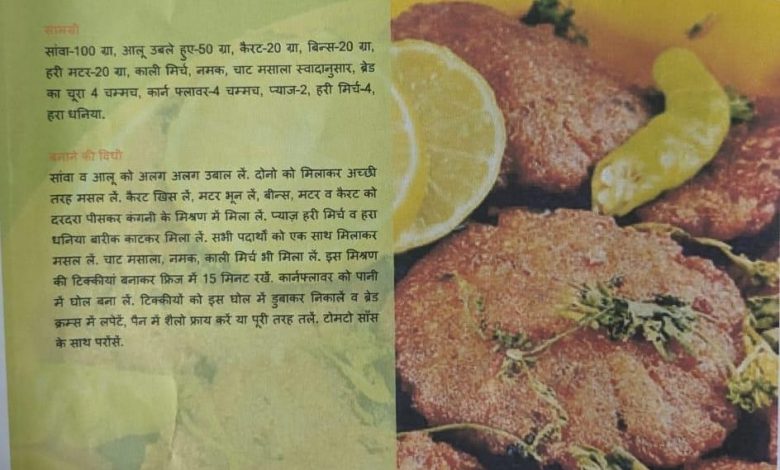 सामग्री
सांवा-100 ग्रा, आलू उबले हुए-50 ग्रा, कैरट-20 ग्रा, बिन्स-20 ग्रा,
हरी मटर-20 ग्रा, काली मिर्च, नमक, चाट मसाला स्वादानुसार, ब्रेड
का चूरा 4 चम्मच, कार्न फ्लावर-4 चम्मच, प्याज-2, हरी मिर्च-4,
हरा धनिया.
बनाने की विधी
सांवा व आलू को अलग अलग उबाल लें. दोनो को मिलाकर अच्छी
तरह मसल लें. कैरट घिस लें, मटर भून लें, बीन्स, मटर व कैरट को
दरदरा पीसकर कंगनी के मिश्रण में मिला लें, प्याज़ हरी मिर्च व हरा
धनिया बारीक काटकर मिला लें. सभी पदार्थो को एक साथ मिलाकर
मसल लें. चाट मसाला, नमक, काली मिर्च भी मिला लें. इस मिश्रण
की टिक्कीयां बनाकर फ्रिज में 15 मिनट रखें. कार्नफ्लावर को पानी
में घोल बना लें. टिक्कीयों को इस घोल में डुबाकर निकालें व ब्रेड
क्रम्स में लपेटें, पैन में शैलो फ्राय करें या पूरी तरह तलें. टोमटो सॉस
के साथ परोंसें.